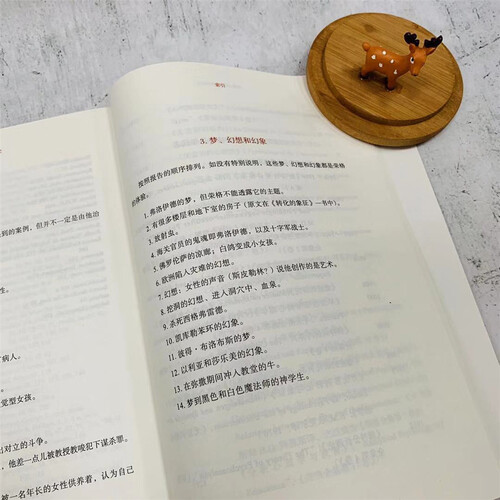 到的案例，但并不一定是由他治
性。
病人。
觉型女孩。
出对立的斗争。
，他差一点儿被教授教唆犯下谋杀罪。
被一名年长的女性供养着，认为自己
索引
3. 梦、幻想和幻象
按照报告的顺序排列，如没有特别说明，这些梦、幻想和幻象都是荣格
的体验。
1. 弗洛伊德的梦，但荣格不能透露它的主题。
2. 有很多楼层和地下室的房子（原文在《转化的象征》一书中）。
3. 放射虫。
4. 海关官员的鬼魂即弗洛伊德，以及十字军战士。
5. 佛罗伦萨的凉廊；白鸽变成小女孩。
6. 欧洲陷入灾难的幻想。
7. 幻想：女性的声音（斯皮勒林？）说他创作的是艺术。
8. 挖洞的幻想、进入洞穴中、血泉。
9. 杀死西格弗雷德。
10. 凯库勒苯环的幻象。
11. 彼得·布洛布斯的梦。
12. 以利亚和莎乐美的幻象。
13. 在弥撒期间冲入教堂的牛。
14. 梦到黑色和白色魔法师的神学生。